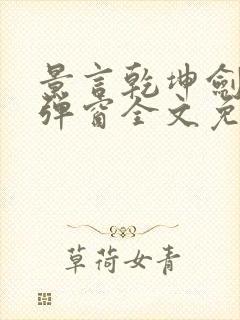 景言乾坤剑
弹窗全文免
草荷女青